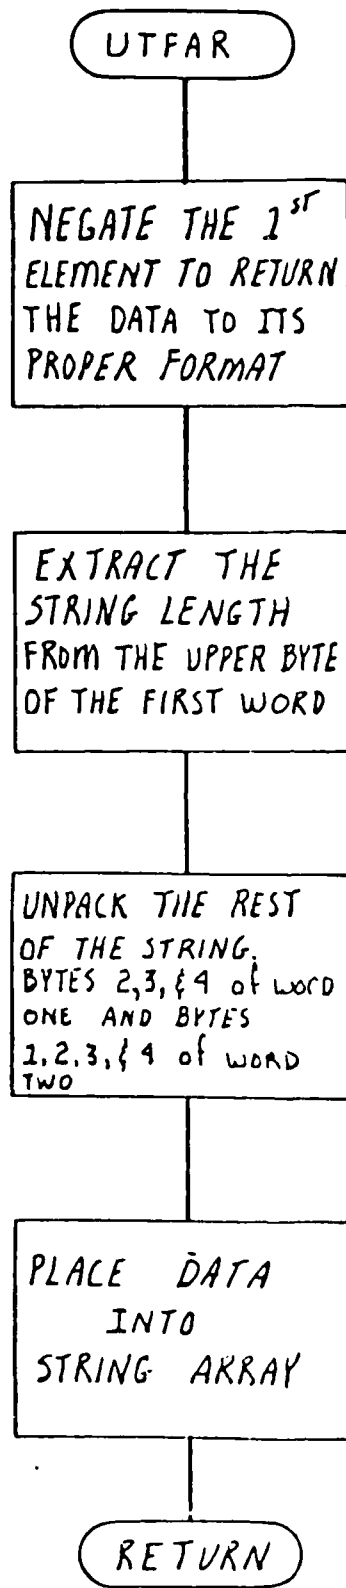 UTFAR
NEGATE THE 1st
ELEMENT TO RETURN
THE DATA TO ITS
PROPER FORMAT
EXTRACT THE
STRING LENGTH
FROM THE UPPER BYTE
OF THE FIRST WORD
UNPACK THE REST
OF THE STRING.
BYTES 2,3, & 4 of WORD
ONE AND BYTES
1,2,3, & 4 of WORD
TWO
PLACE DATA
INTO
STRING ARRAY
RETURN